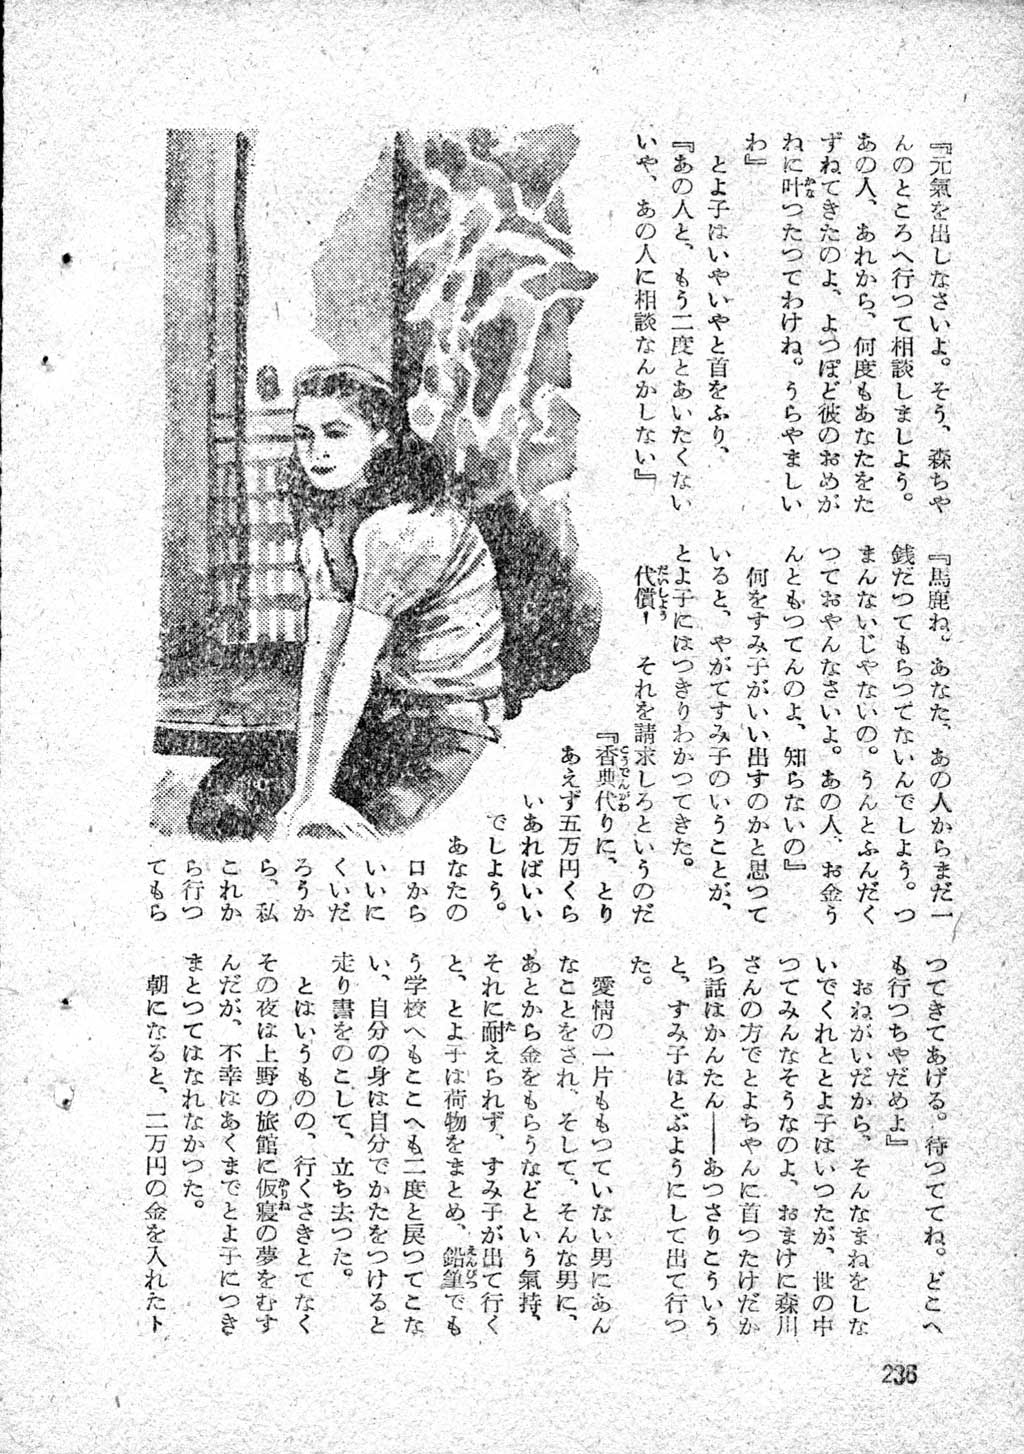 『元氣を出しなさいよ。そう、森ちや
んのところへ行つて相談しましよう。
あの人、あれから、何度もあなたをた
ずねてきたのよ、よつぽど彼のおめが
ねに叶つたつてわけね。うらやましい
わ』
とよ子はいやいやと首をふり、
『あの人と、もう二度とあいたくない
いや、あの人に相談なんかしない』
『馬鹿ね。あなた、あの人からまだ一
銭だつてもらつてないんでしよう。つ
まんないじやないの。うんとふんだく
つておやんなさいよ。あの人、お金う
んともつてんのよ、知らないの』
何をすみ子がいい出すのかと思つて
いると、やがてすみ子のいうことが、
とよ子にはつきりわかつてきた。
代償！ それを請求しろというのだ
『香典代りに、とり
あえず五万円くら
いあればいい
でしよう。
あなたの
口から
いいに
くいだ
ろうか
ら、私
これか
ら行つ
てもら
つてきてあげる。待つててね。どこへ
も行つちやだめよ』
おねがいだから、そんなまねをしな
いでくれととよ子はいつたが、世の中
つてみんなそうなのよ、おまけに森川
さんの方でとよちやんに首つたけだか
ら話はかんたん――あつさりこういう
と、すみ子はとぶようにして出て行つ
た。
愛情の一片ももつていない男にあん
なことをされ、そして、そんな男に、
あとから金をもらうなどという氣持、
それに耐えられず、すみ子が出て行く
と、とよ子は荷物をまとめ、鉛筆でも
う学校へもここへも二度と戻つてこな
い、自分の身は自分でかたをつけると
走り書をのこして、立ち去つた。
とはいうものの、行くさきとてなく
その夜は上野の旅館に仮寝の夢をむす
んだが、不幸はあくまでとよ子につき
まとつてはなれなかつた。
朝になると、二万円の金を入れたト
236